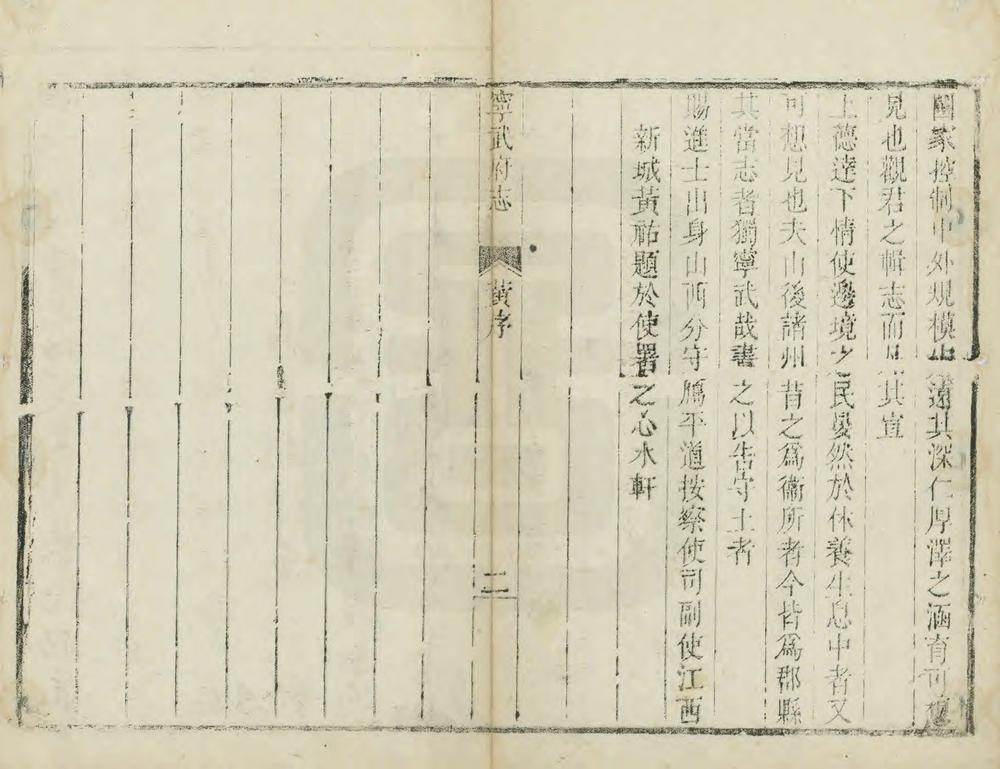 國家控制中外規模宏遠其深仁厚澤之涵育可槪
見也觀君之輯志而見其宣
上德達下情使邊境之民晏然於休養生息中者又
可想見也夫山後諸州昔之爲衞所者今皆爲郡縣
其當志者獨寧武哉書之以告守土者
賜進士出身山西分守鴈平道按察使司副使江西
新城黃祐題於使署之心水軒
寧武府志
黃序
二